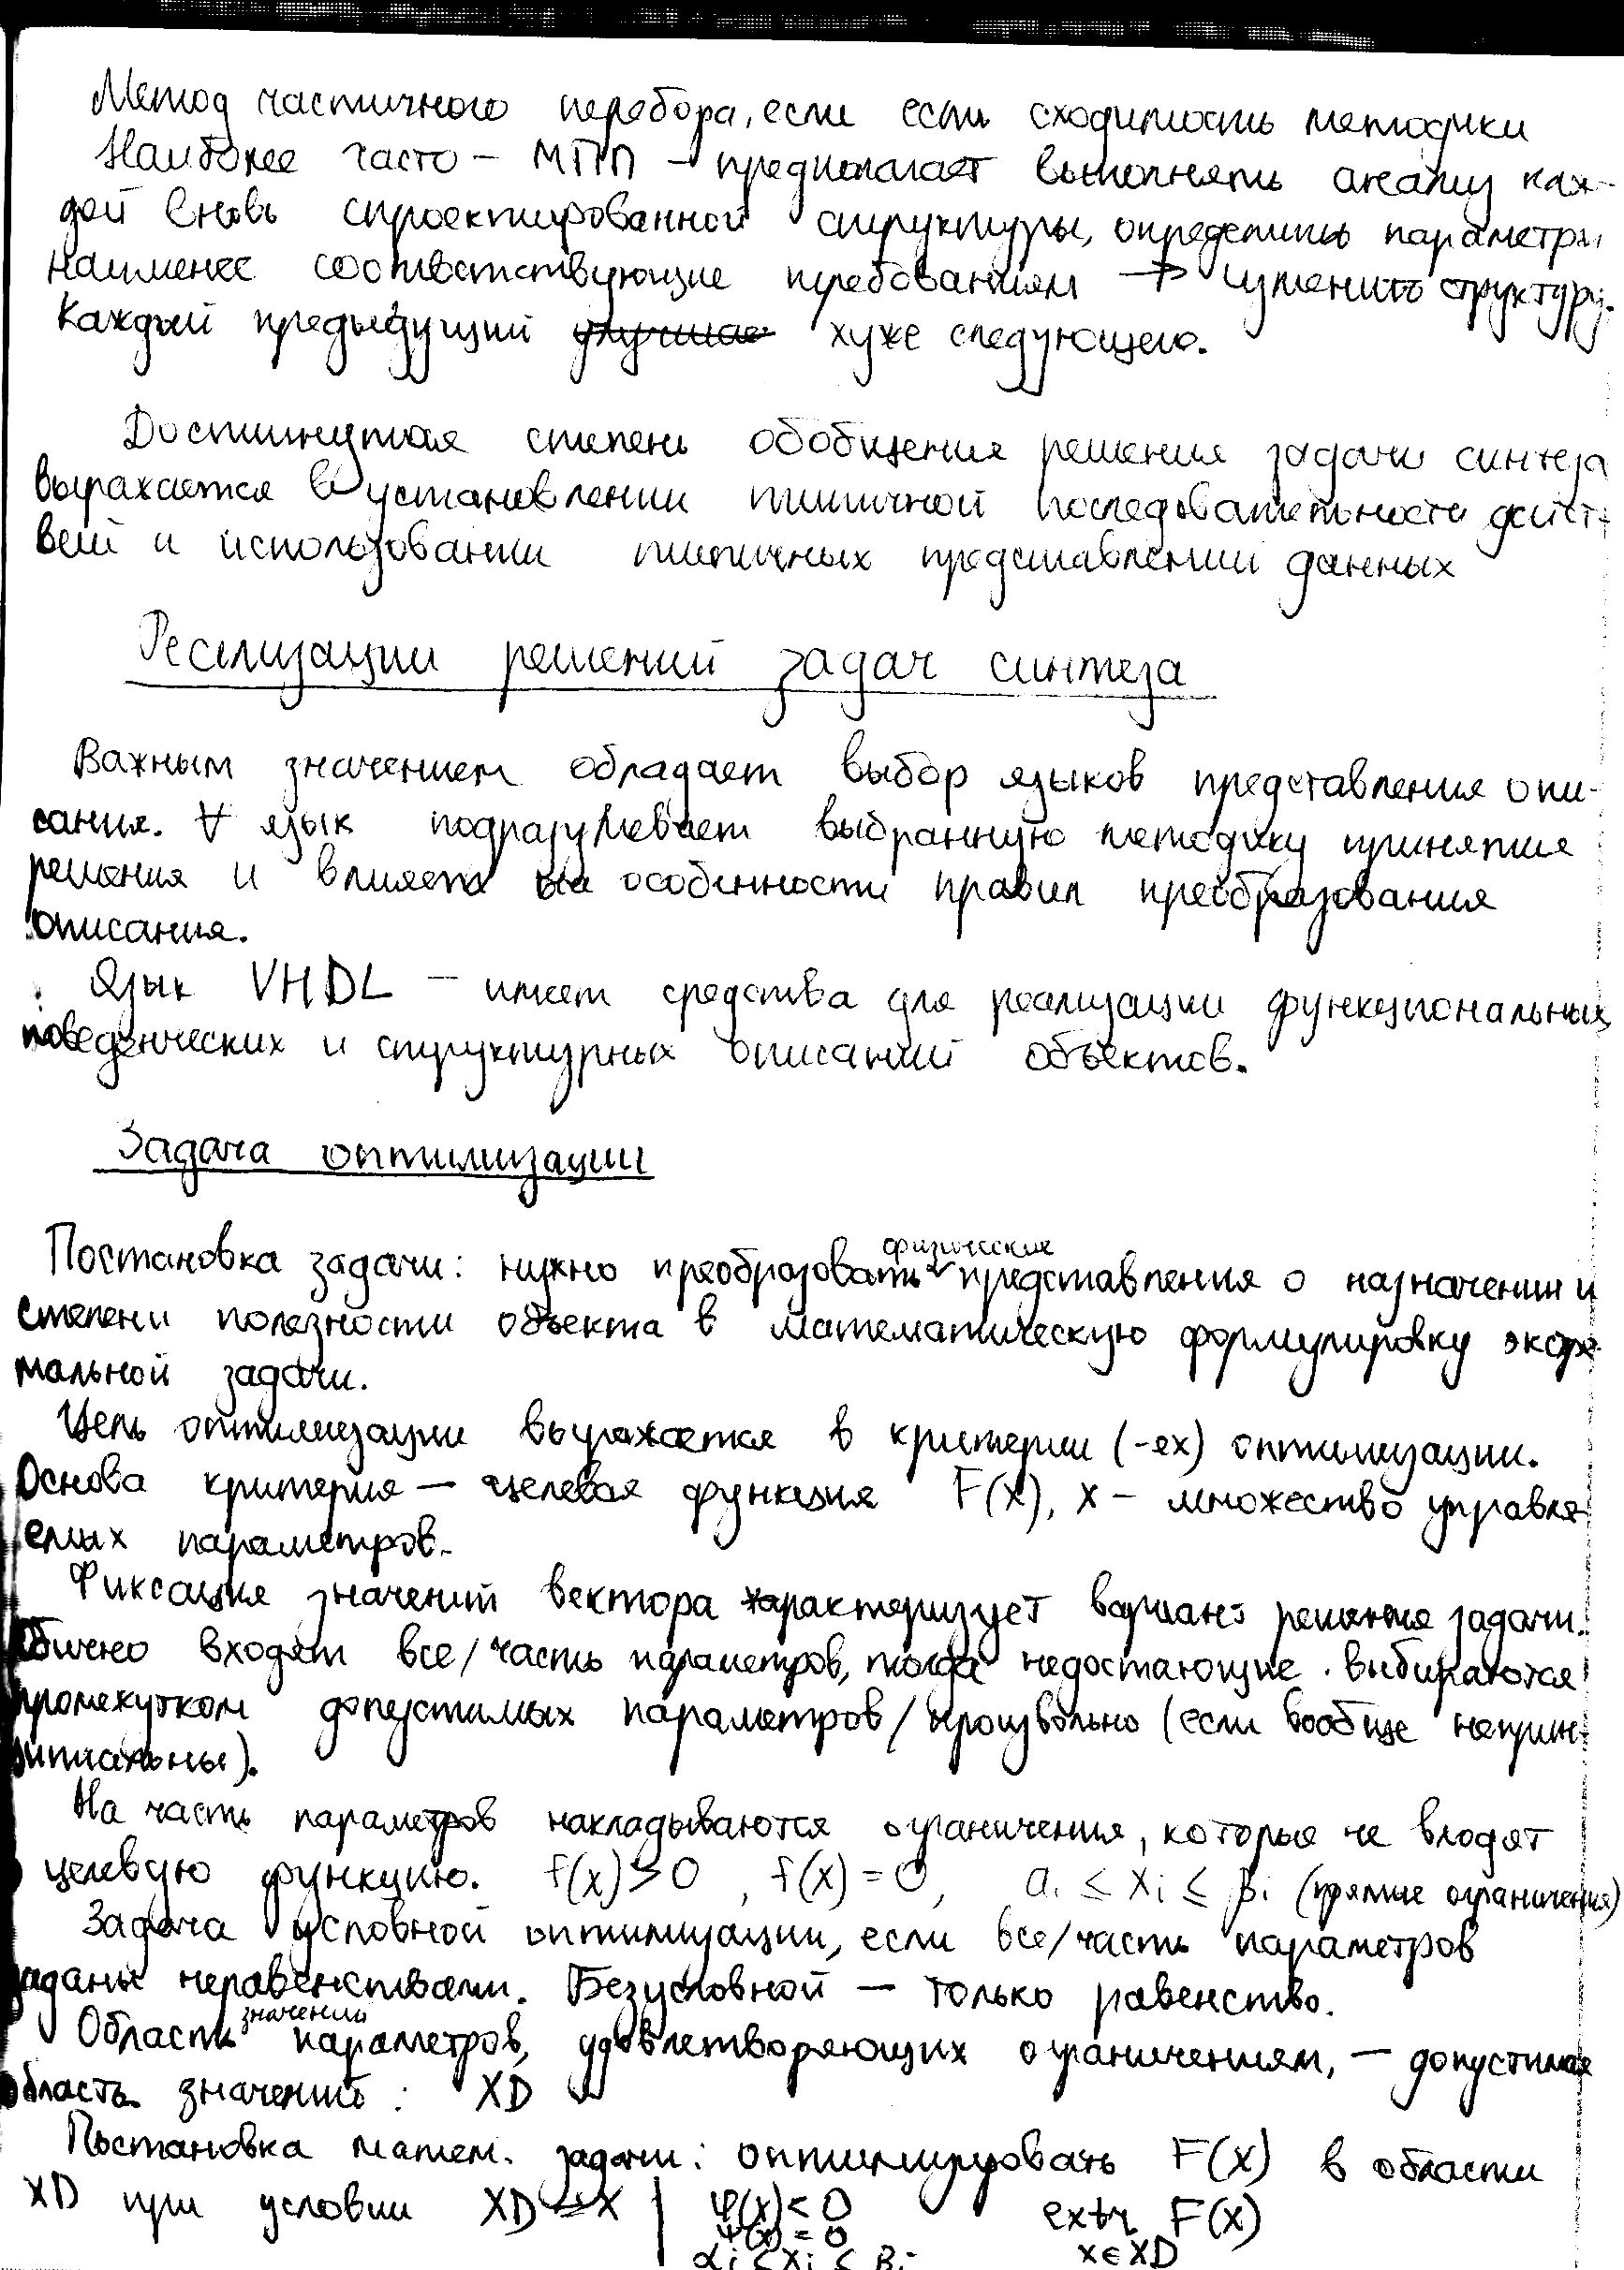 Метод частичного перебора, если есть сходимость методики
Наиболее часто – МПП – предполагает выполнять анализ каж-
дой вновь спроектированной структуры, определить параметры
наименее соответствующие требованиям → изменить структуру.
Каждый предыдущий хуже следующего.
Достигнутая степень обобщения решения задачи синтеза
выражается в установлении типичной последовательности дейст-
вий и использовании типичных представлений данных
Реализации решений задач синтеза
Важным значением обладает выбор языков представления опи-
сания. ∀ язык подразумевает выбранную методику принятия
решения и влияет на особенности правил преобразования
описания.
Язык VHDL – имеет средства для реализации функциональных,
поведенческих и структурных описаний объектов.
Задача оптимизации
Постановка задачи: нужно преобразовать физические представления о назначении и
степени полезности объекта в математическую формулировку экстре-
мальной задачи.
Цель оптимизации выражается в критерии (-ех) оптимизации.
Основа критерия – целевая функция F(x), x – множество управля-
емых параметров.
Фиксация значений вектора характеризует вариант решения задачи.
Обычно входят все/часть параметров, тогда недостающие выбираются
промежутком допустимых параметров/произвольно (если вообще неприн-
ципиальны).
На часть параметров накладываются ограничения, которые не входят
в целевую функцию. f(x)>0, f(x)=0, αi ≤ xi ≤ βi (прямые ограничения)
Задача условной оптимизации, если все/часть параметров
заданы неравенствами. Безусловной – только равенство.
Область значений параметров, удовлетворяющих ограничениям, – допустимая
область значений: XD
Постановка матем. задачи: оптимизировать F(x) в области
XD при условии XD ⊆ X | φ(x)<0 extr F(x)
ψ(x)=0 x∈XD
αi < xi < βi